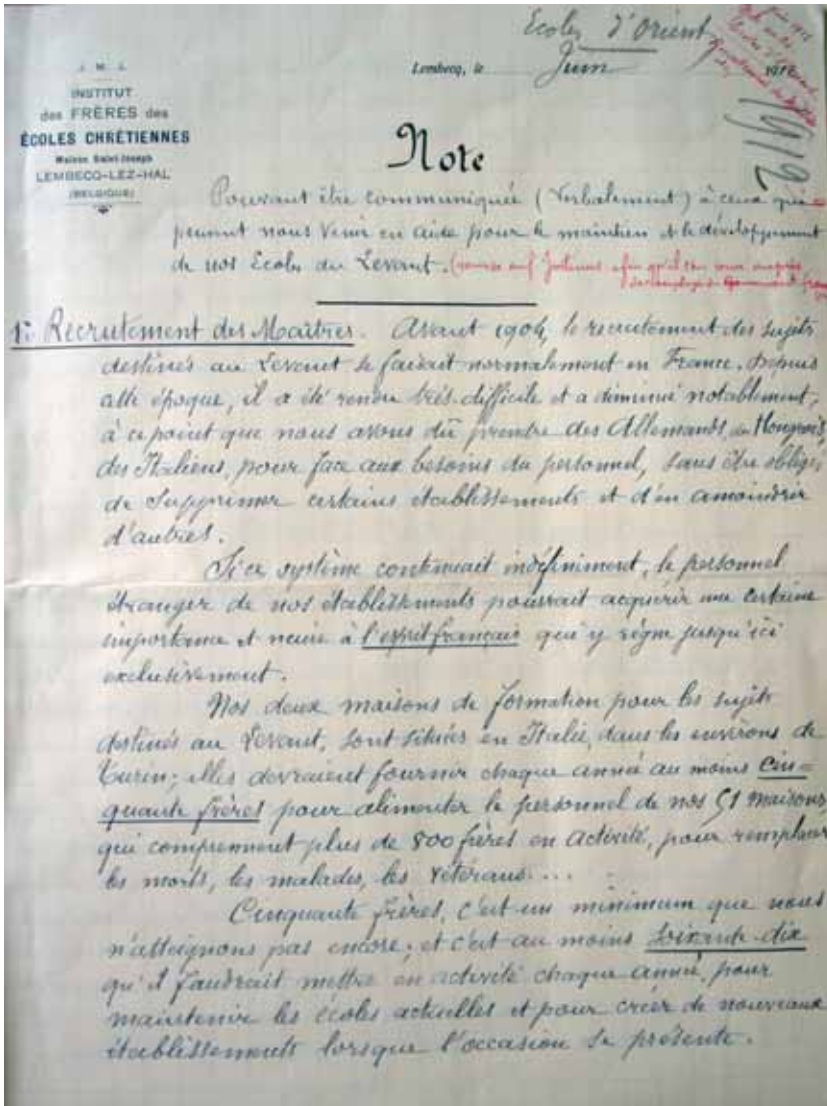 Ecoles d'Orient
J. M. J.
INSTITUT
des FRÈRES des
ÉCOLES CHRÉTIENNES
Maison Saint-Joseph
LEMBECQ-LEZ-HAL
(BELGIQUE)
Lembecq, le Juin 1912
1912
Note
Pouvant être communiquée (verbalement) à ceux qui
peuvent nous venir en aide pour le maintien et le développement
de nos Ecoles du Levant.
1º Recrutement des Maîtres. Avant 1904, le recrutement des sujets
destinés au Levant se faisait normalement en France. Depuis
cette époque, il a été rendu très difficile et a diminué notablement,
à ce point que nous avons dû prendre des Allemands, des Hongrois,
des Italiens, pour face aux besoins du personnel, sans être obligés
de supprimer certains établissements et d'en amoindrir
d'autres.
Si ce système continuait indéfiniment, le personnel
étranger de nos établissements pourrait acquérir une certaine
importance et nuire à l'esprit français qui y règne jusqu'ici
exclusivement.
Nos deux maisons de formation pour les sujets
destinés au Levant, sont situées en Italie, dans les environs de
Turin; elles devraient fournir chaque année au moins cin=
quante frères pour alimenter le personnel de nos 51 maisons,
qui comprennent plus de 800 frères en activité, pour remplacer
les morts, les malades, les vétérans...
Cinquante frères, c'est un minimum que nous
n'atteignons pas encore; et c'est au moins soixante-dix
qu'il faudrait mettre en activité chaque année, pour
maintenir les écoles actuelles et pour créer de nouveaux
établissements lorsque l'occasion se présente.